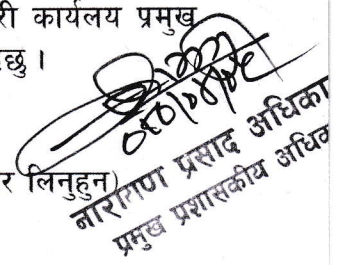 री कार्यलय प्रमुख
छु ।
र लिनुहुन)
नारायण प्रसाद अधिका
प्रमुख प्रशासकीय अधिक